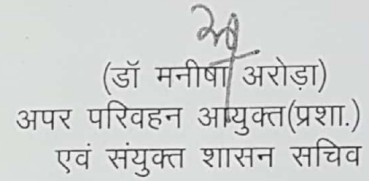 (डॉ मनीषा अरोड़ा)
अपर परिवहन आयुक्त(प्रशा.)
एवं संयुक्त शासन सचिव